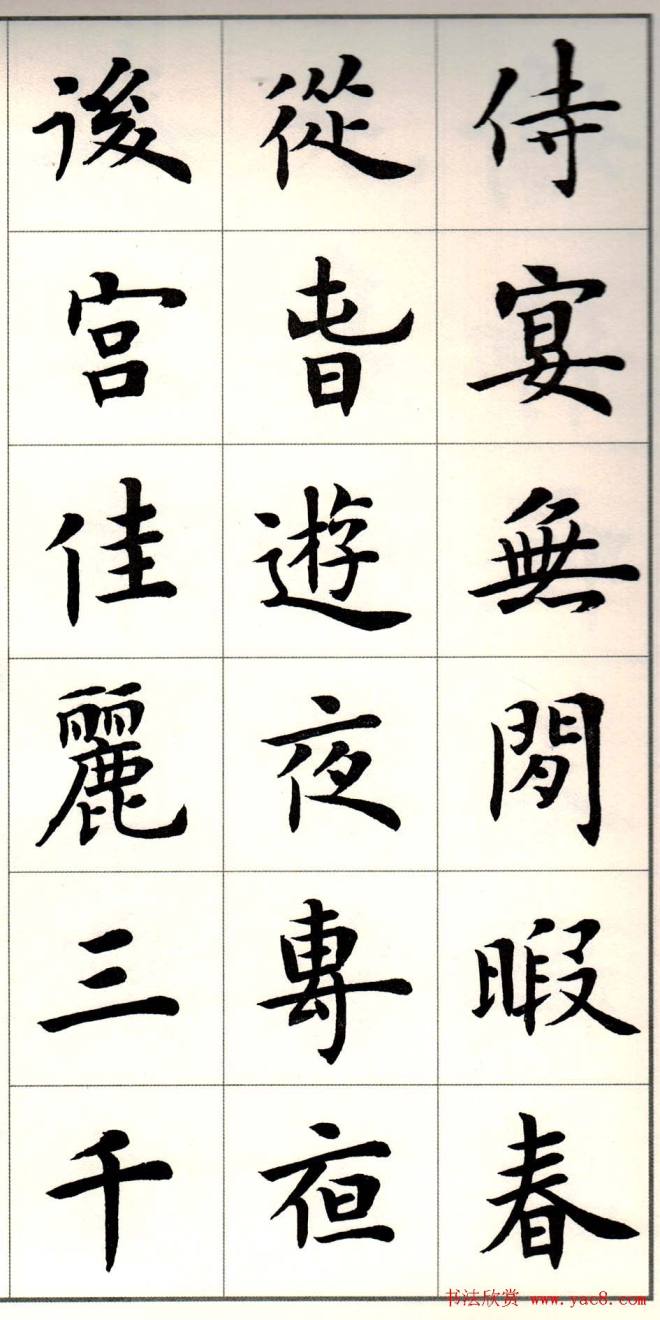 侍宴無閒暇春
從旾遊夜專亱
後宮佳麗三千
书法欣赏 www.yac8.com